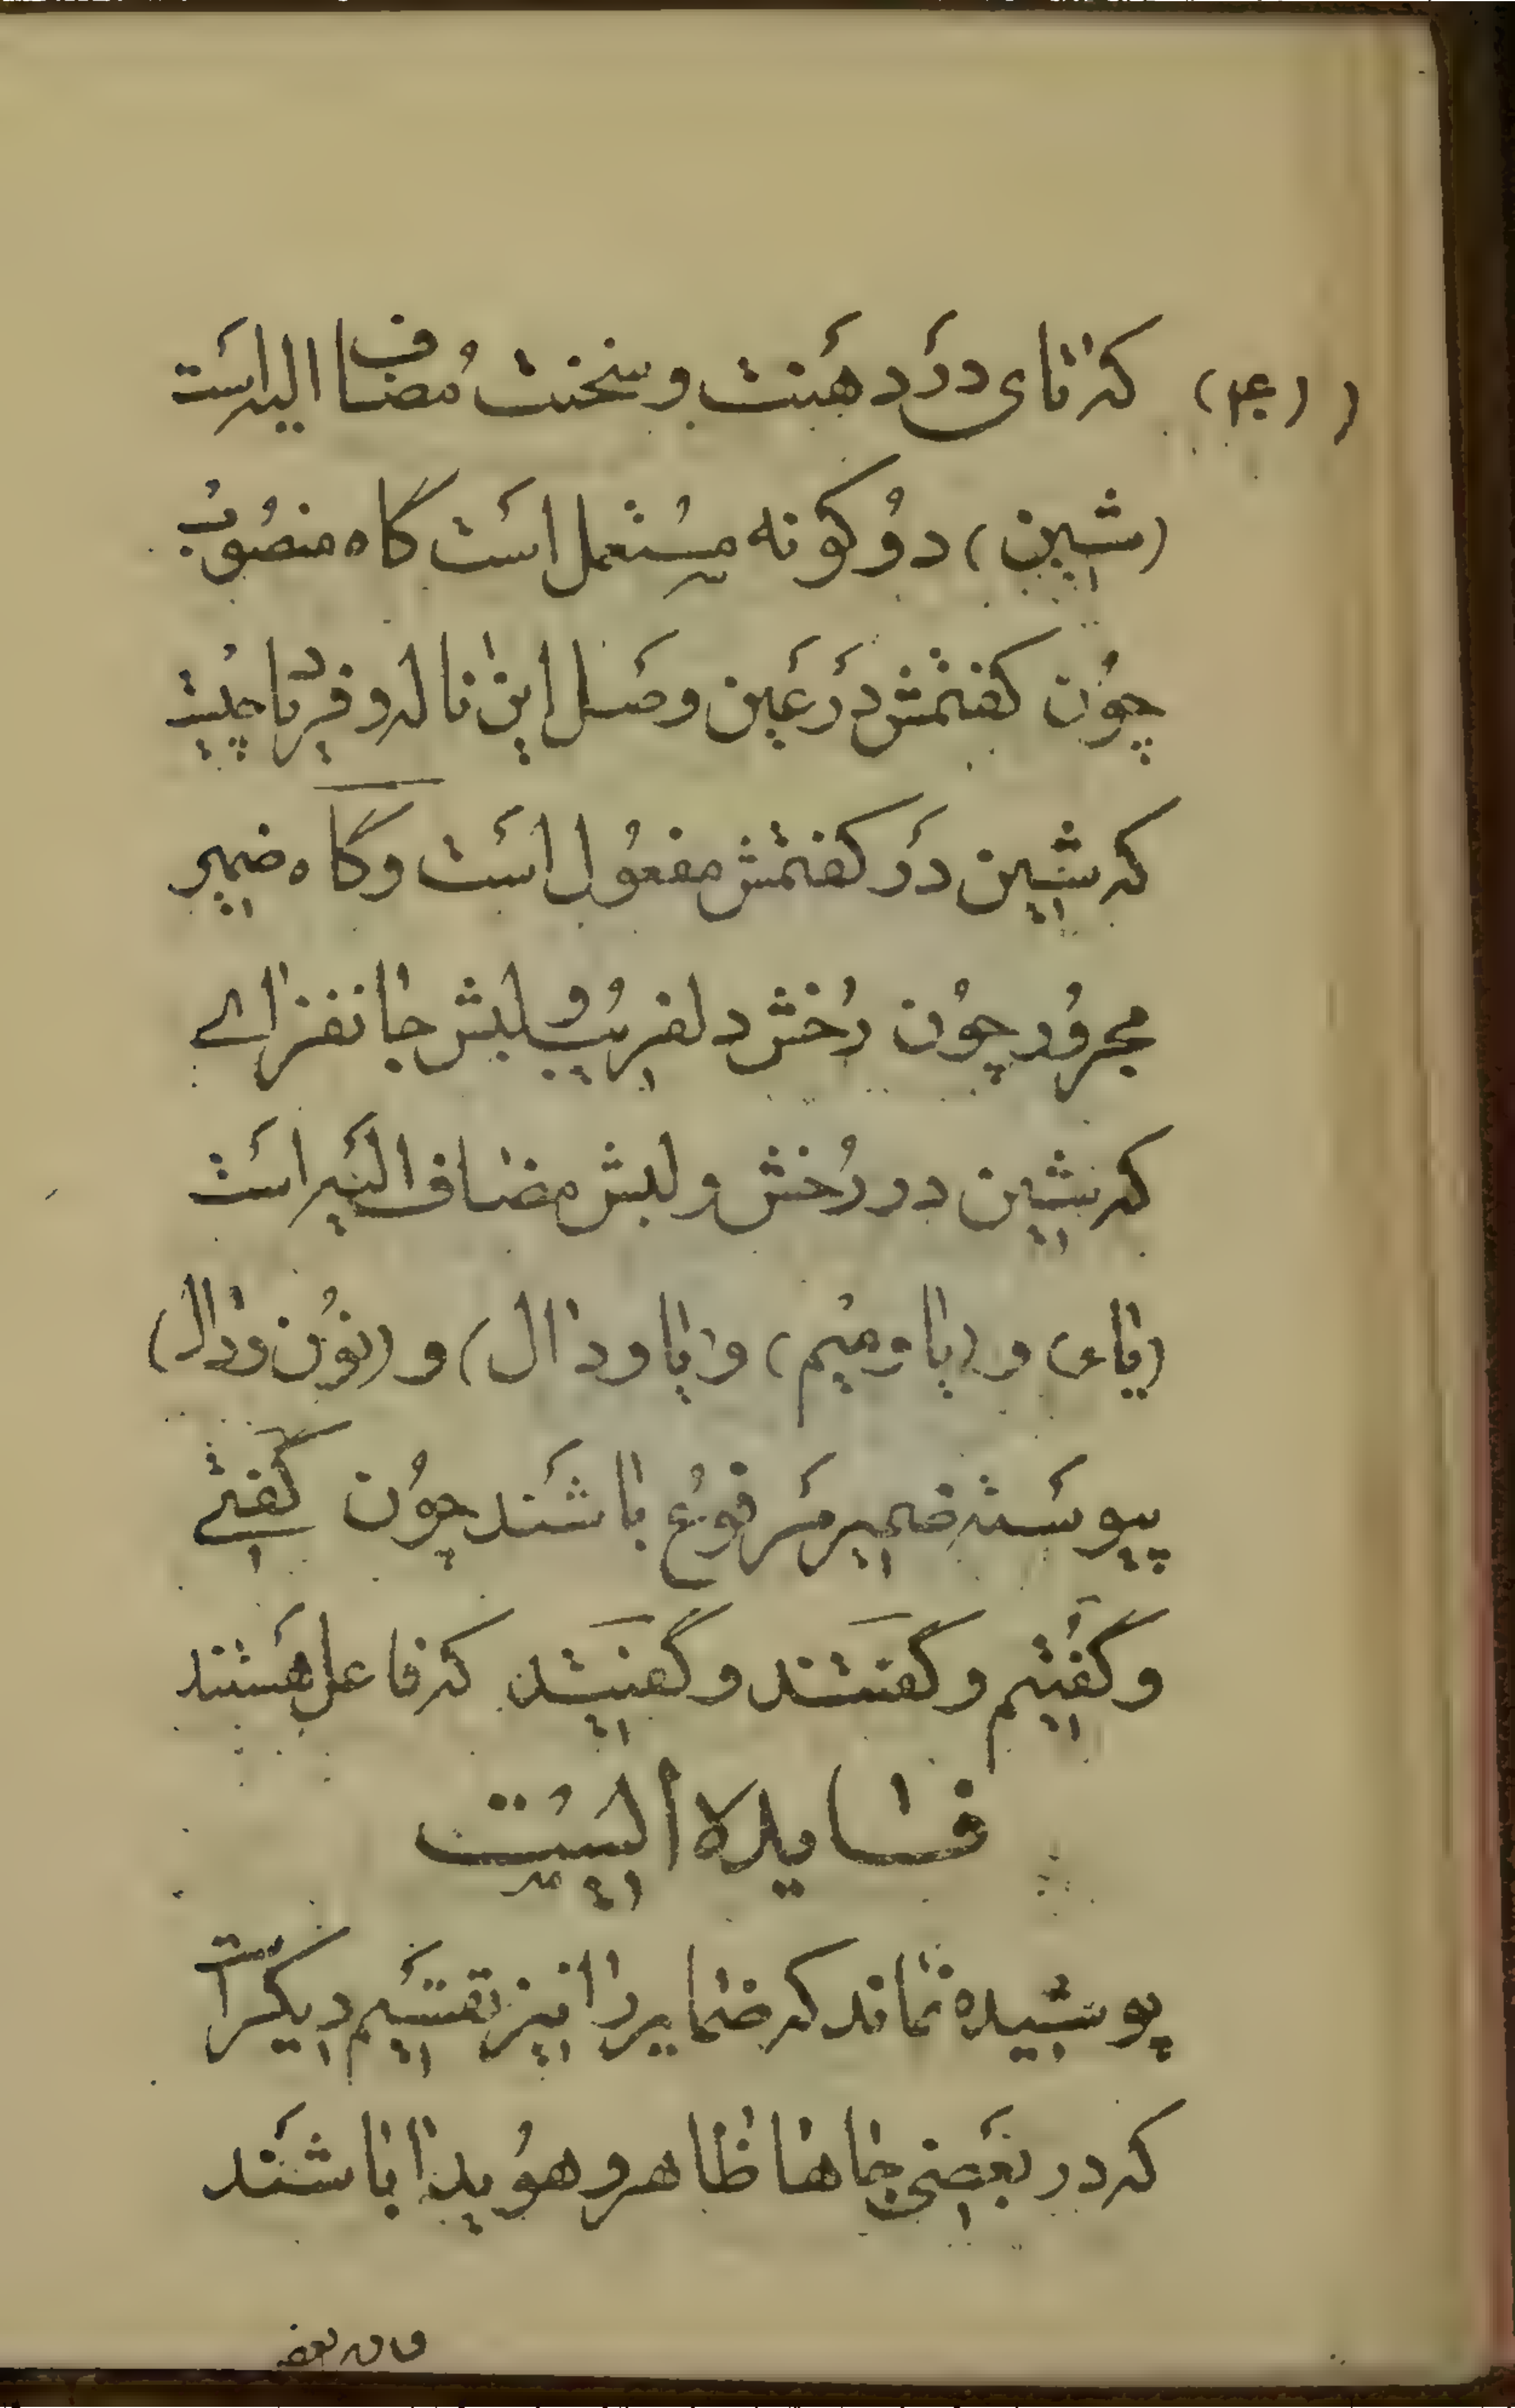 که تای در دهنت و سخنت مُضاف الیه است
(شین) دو کونه مستعمل است گاه منصوب
چون کفتمش در عین وصل این ناله و فریاد چیست
که شین در کفتمش مفعول است و گاه ضمیر
مجرور چون رخش دلفریب و لبش جانفزاے
که شین در رخش و لبش مضاف الیه است
(یای) و (یا و میم) و (یا و دال) و (نون و دال)
پیوسته ضمیر مرفوع باشند چون گفتے
و گفتیم و گفتند و گفتید که فاعل هستند
فایده ایست
پوشیده نماند که ضمایر را نیز تقسیم دیکر است
که در بعضی جاها ظاهر و هویدا باشند
و در بعض